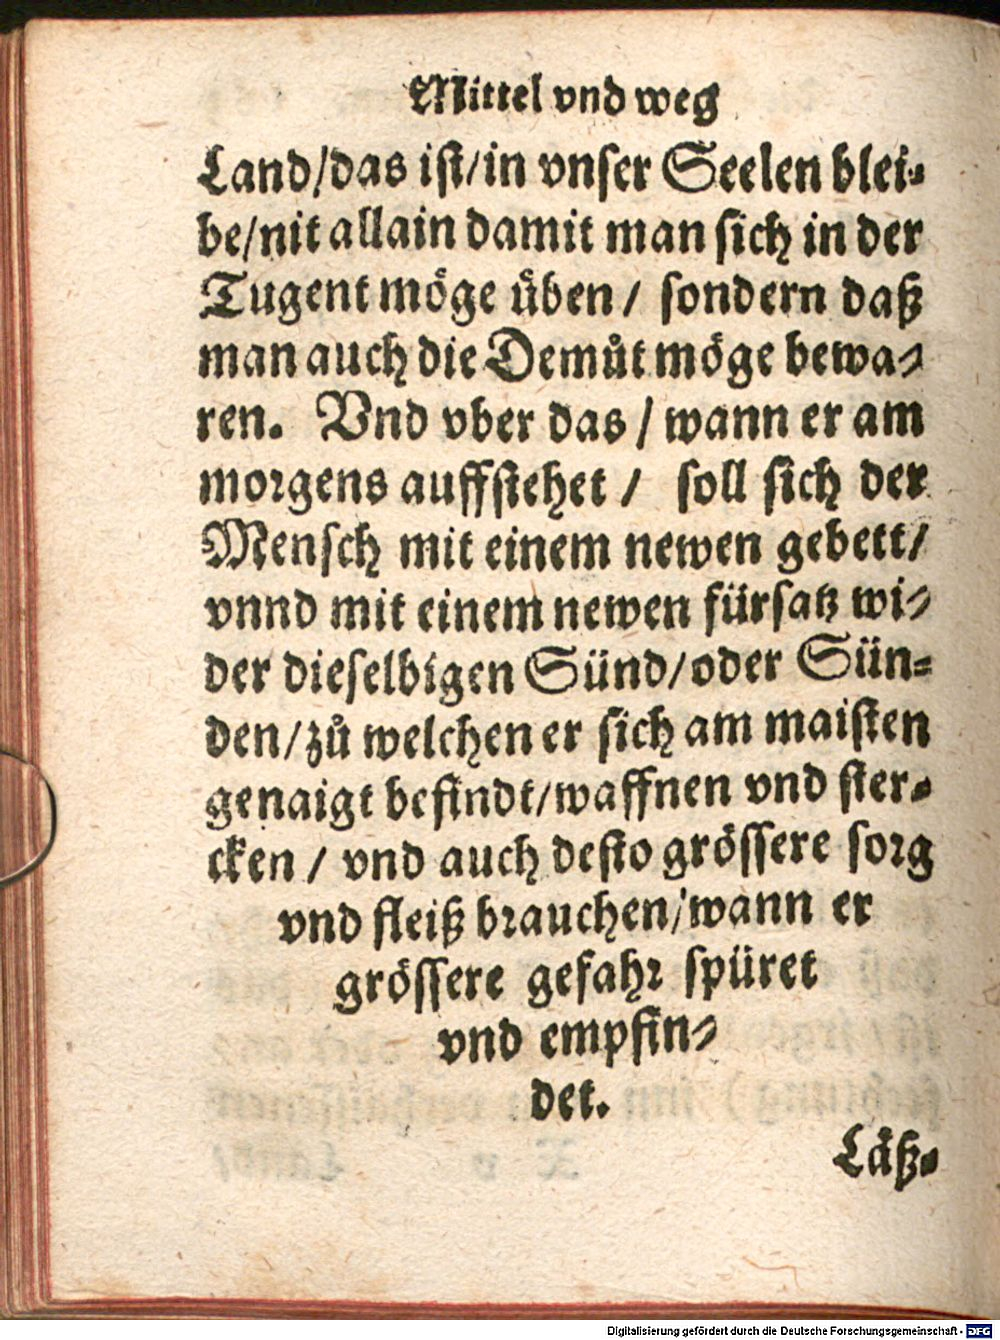 Mittel vnd weg
Land/das ist/in vnser Seelen blei-
be/nit allain damit man sich in der
Tugent möge uͤben/ sondern daß
man auch die Demuͦt möge bewa-
ren. Vnd vber das/ wann er am
morgens auffstehet/ soll sich der
Mensch mit einem newen gebett/
vnnd mit einem newen fürsatz wi-
der dieselbigen Sünd/oder Sün-
den/zuͦ welchen er sich am maisten
genaigt befindt/waffnen vnd ster-
cken/ vnd auch desto grössere sorg
vnd fleiß brauchen/wann er
grössere gefahr spüret
vnd empfin-
det.
Läß-
Digitalisierung gefördert durch die Deutsche Forschungsgemeinschaft - DFG